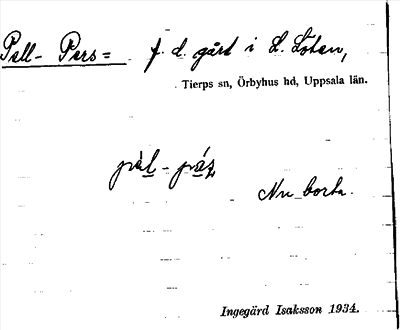 Pell- Pers= f. d. gård i L. Löten,
Tierps sn, Örbyhus hd, Uppsala län.
pàl - páṣ
Nu borta.
Ingegärd Isaksson 1934.